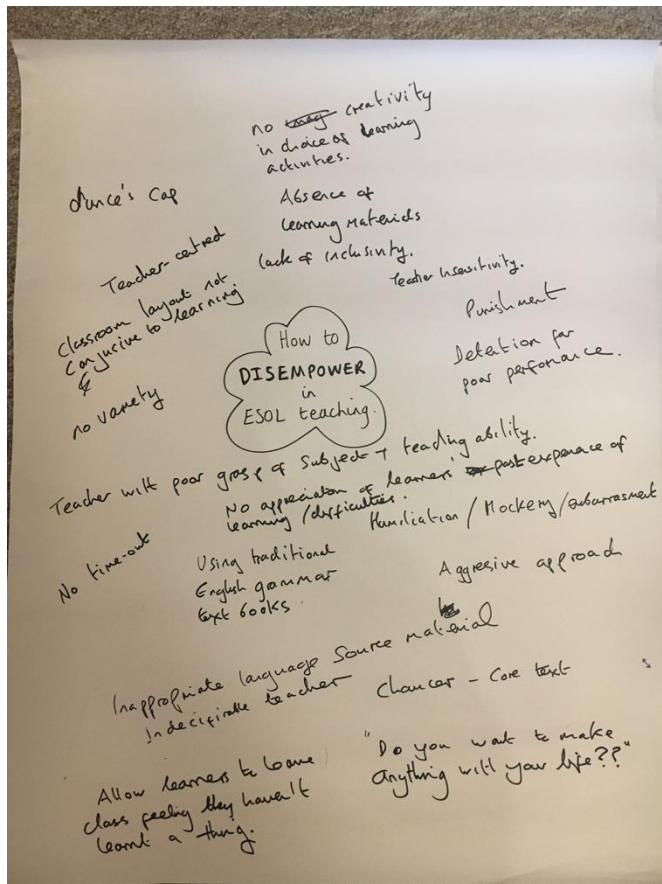 no creativity
in choice of learning
activities.
dunce's cap
Absence of
learning materials
Teacher-centred
lack of inclusivity.
Teacher Insensitivity.
Classroom layout not
conjusive to learning
&
no variety
Punishment
Detention for
poor perfomance.
How to
DISEMPOWER
in
ESOL teaching.
Teacher with poor grasp of subject + teaching ability.
No appreciation of learners' past experience of
learning / difficulties.
Humiliation / Mockery / embarrasment
No time-out
Using traditional
English grammar
text books.
Aggresive approach
Inappropriate language source material
Indecifirable teacher
Chaucer - Core text
Allow learners to leave
class feeling they haven't
learnt a thing.
"Do you want to make
anything with your life??"